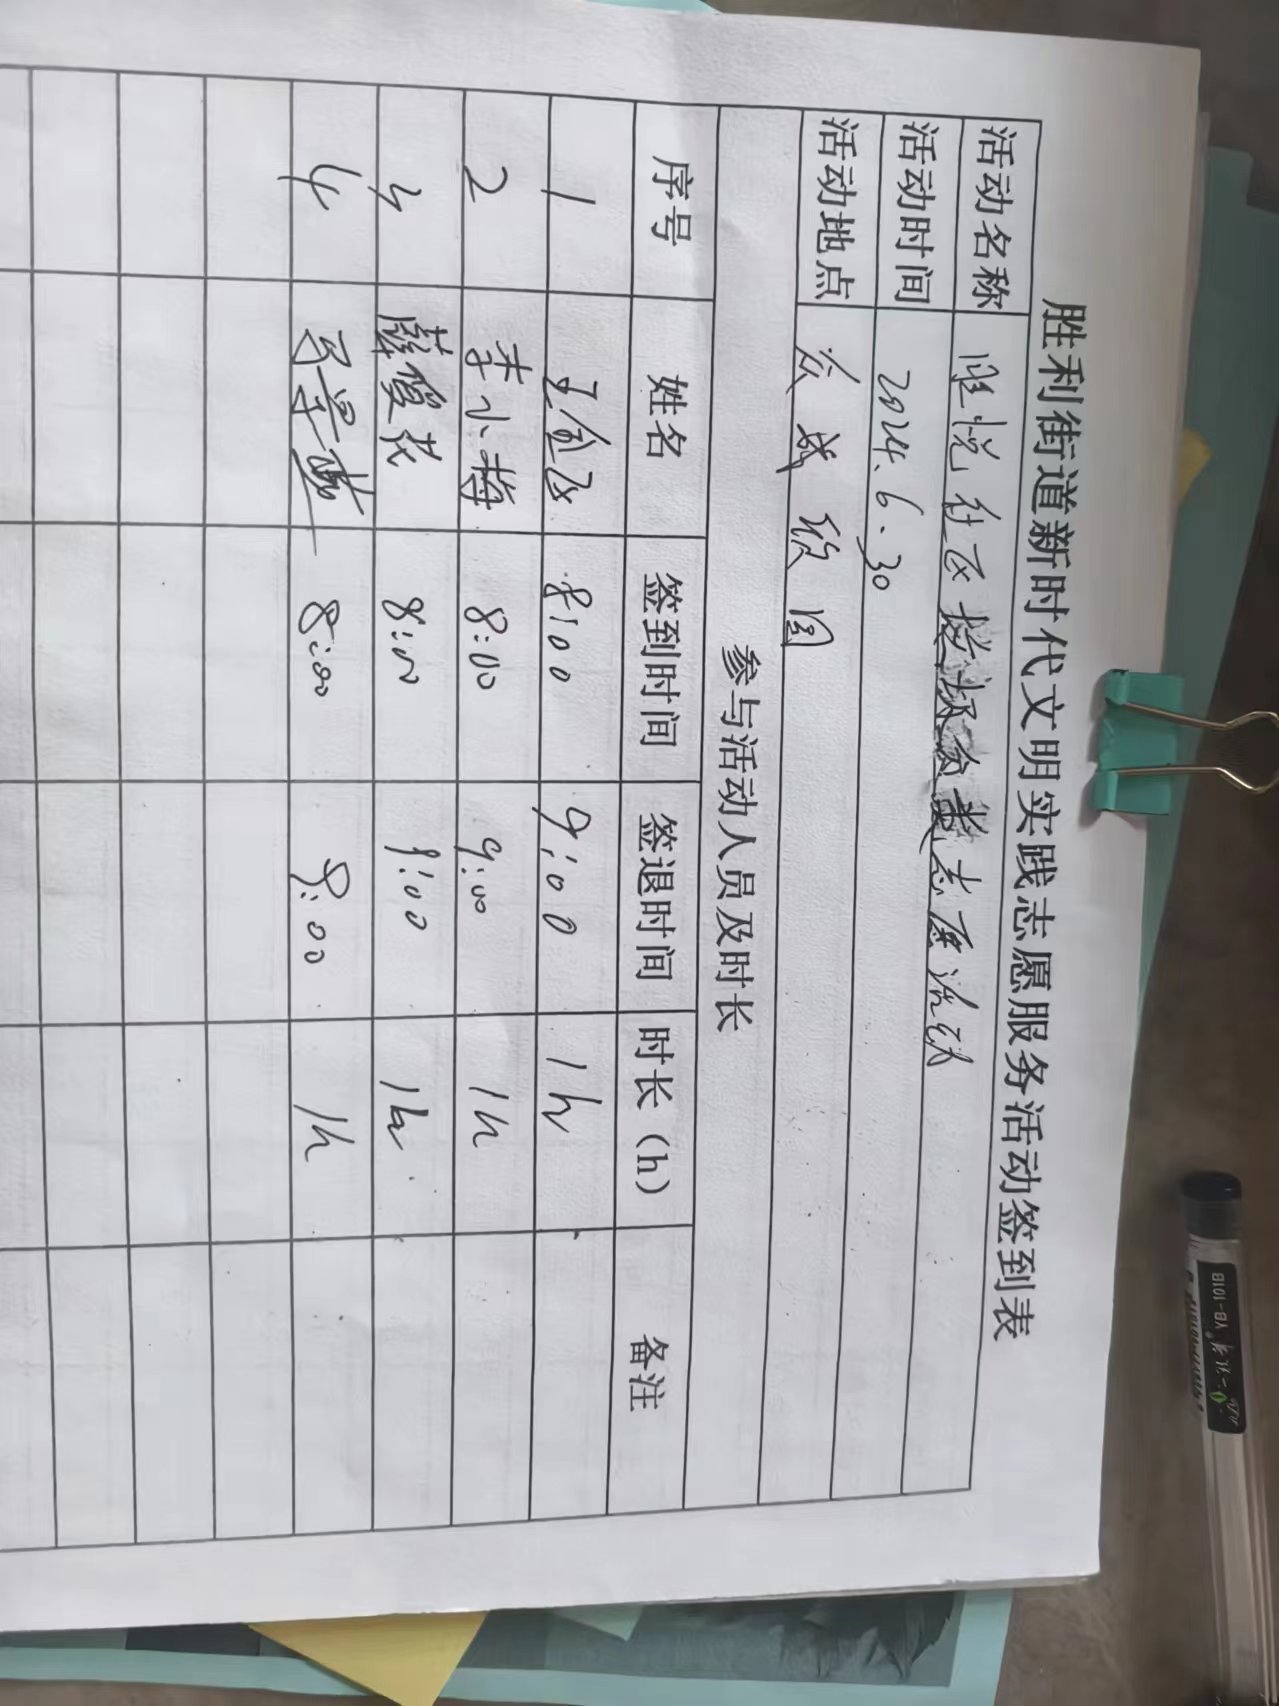 胜利街道新时代文明实践志愿服务活动签到表
活动名称 胜悦社区垃圾分类志愿活动
活动时间 2024.6.30
活动地点 众成欣园
参与活动人员及时长
序号 姓名 签到时间 签退时间 时长（h） 备注
1 8:00 9:00 1h
2 李小梅 8:00 9:00 1h
3 薛俊花 8:00 9:00 1h
4 8:00 9:00 1h
YB-101B